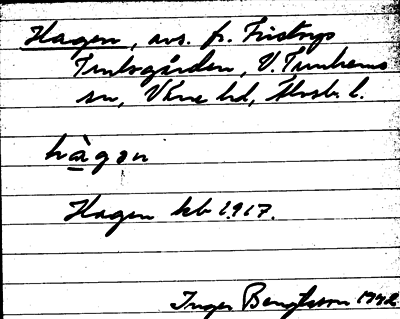 Hagen, avs. fr. Fristorp
Trulsgården, V. Tunhems
sn, Väne hd, Älvsb. l.
hàgən
Hagen kb 1917.
Inger Bengtsson 1942